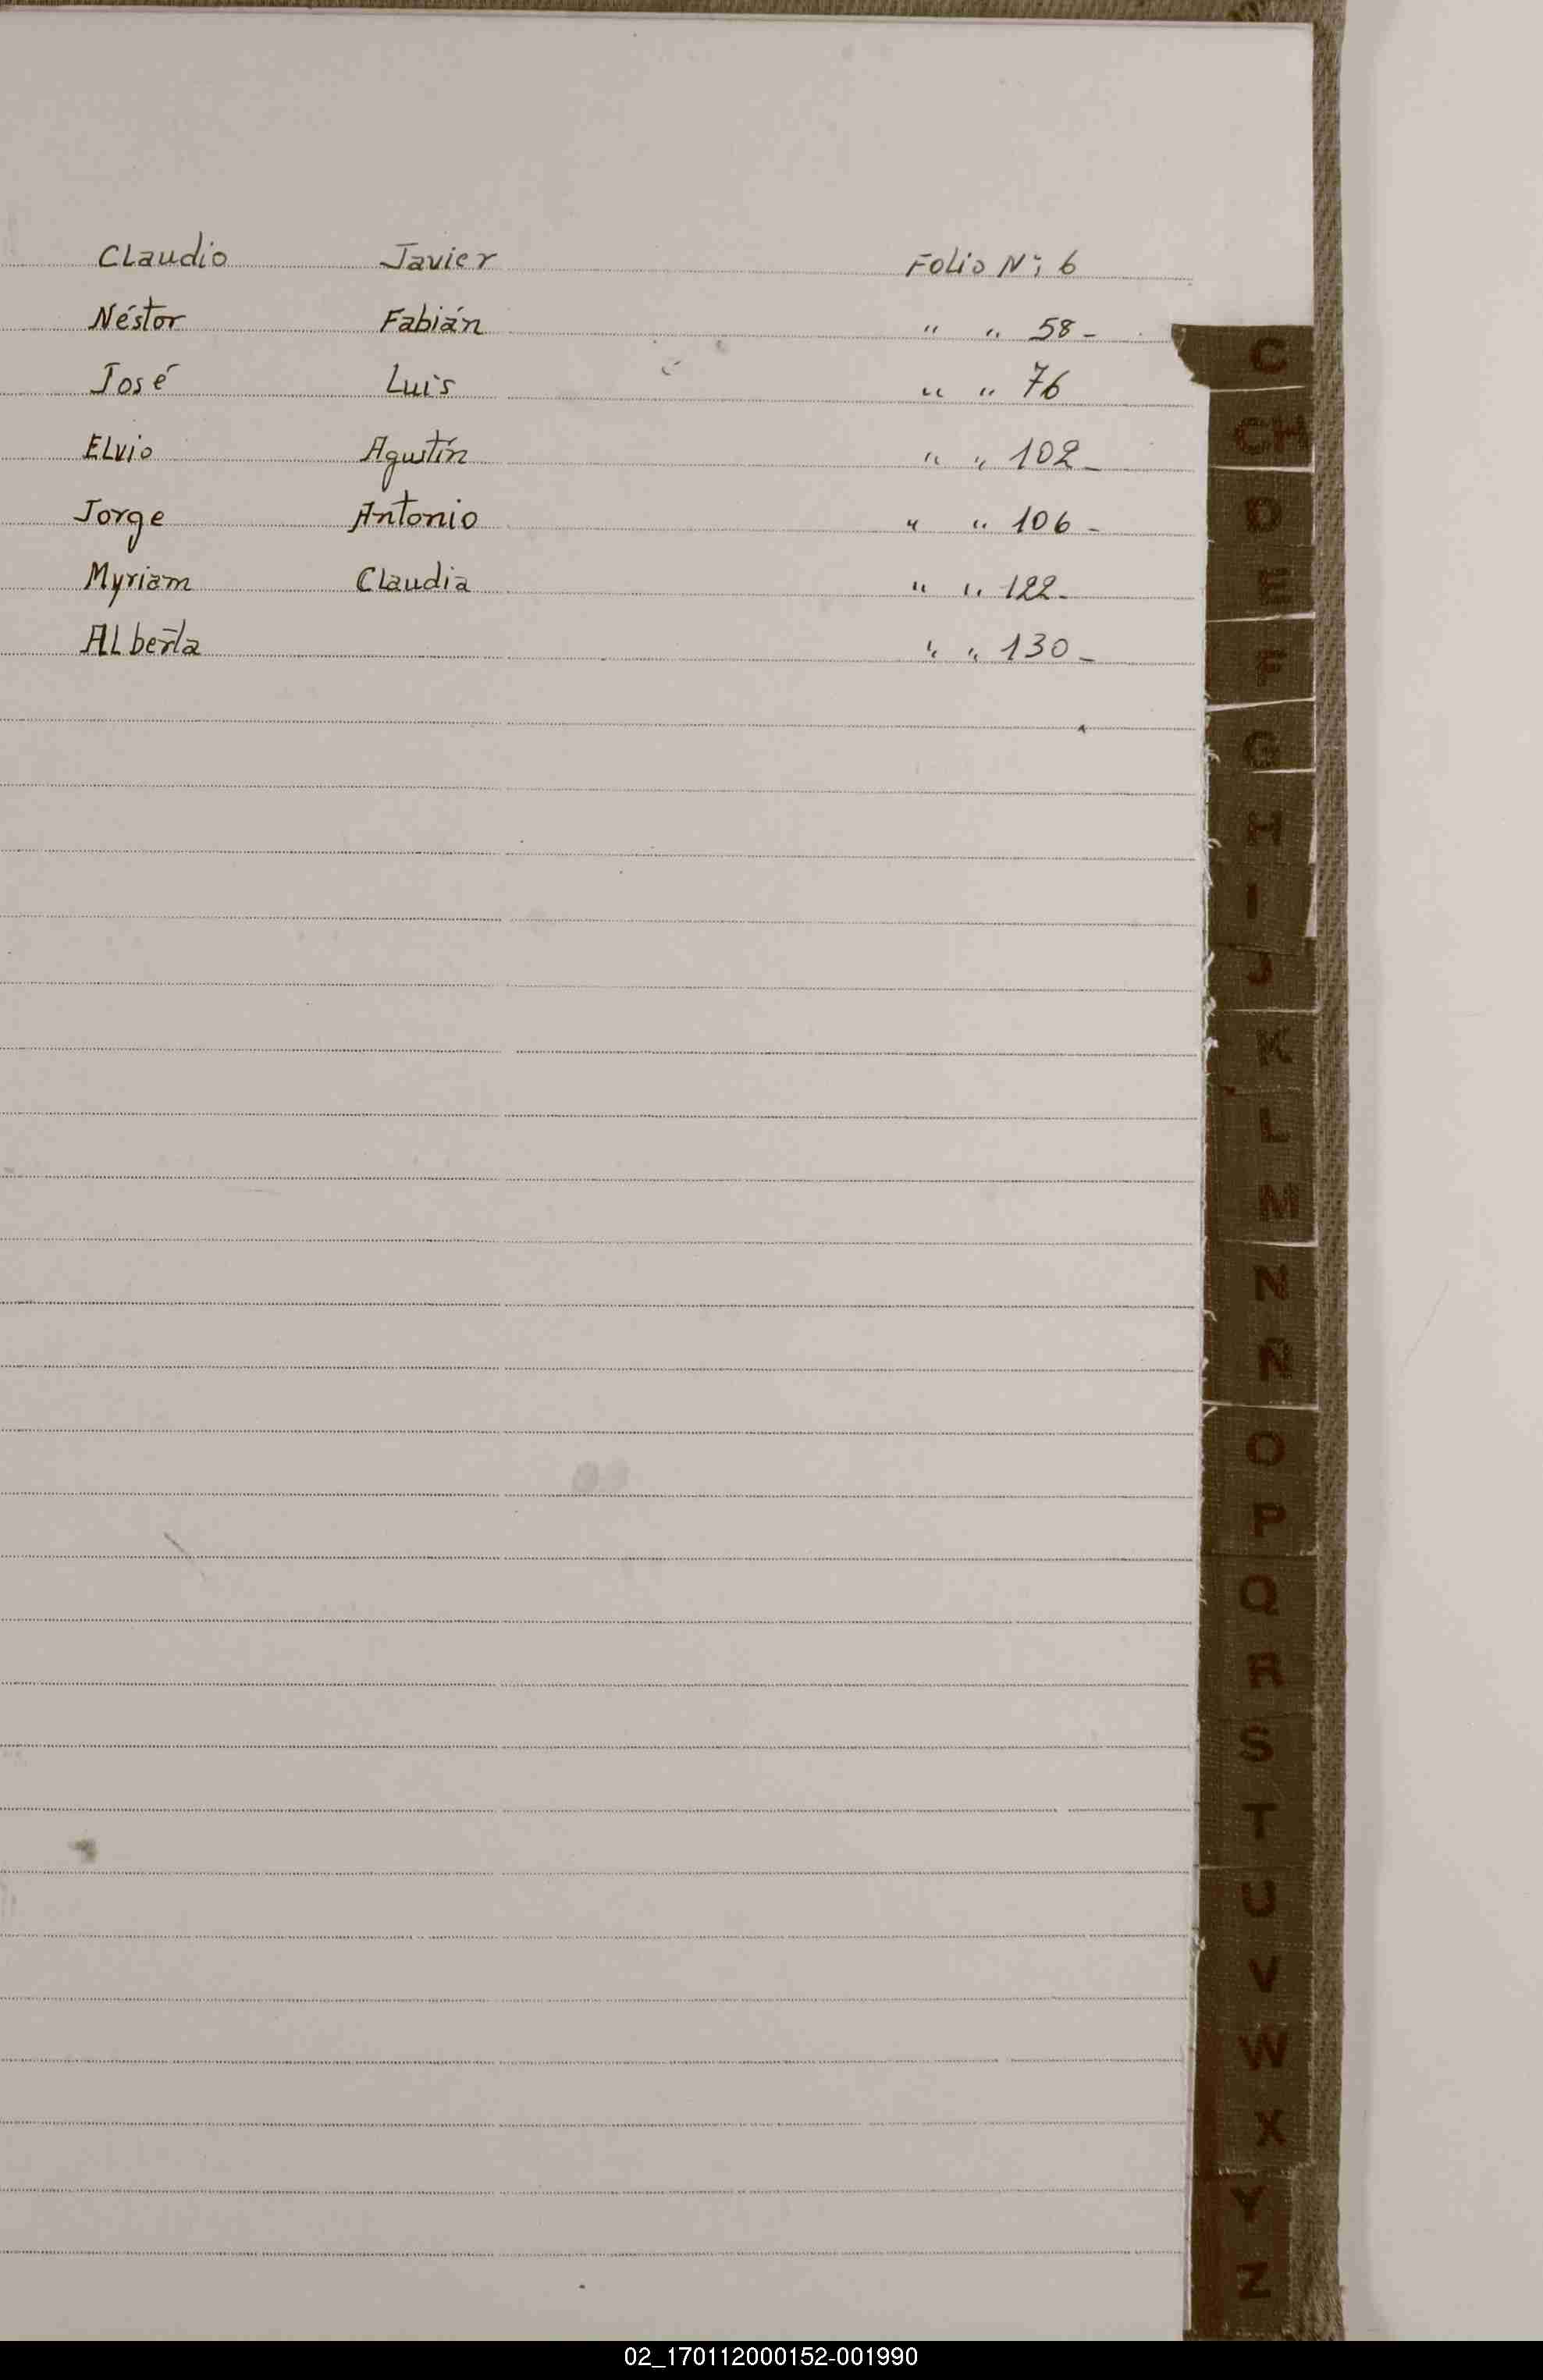 Claudio Javier Folio Nº 6
Néstor Fabián " " 58-
José Luis " " 76
Elvio Agustín " " 102-
Jorge Antonio " " 106-
Myriam Claudia " " 122-
Alberta " " 130-
C
CH
D
E
F
G
H
I
J
K
L
M
N
Ñ
O
P
Q
R
S
T
U
V
W
X
Y
Z
02_170112000152-001990